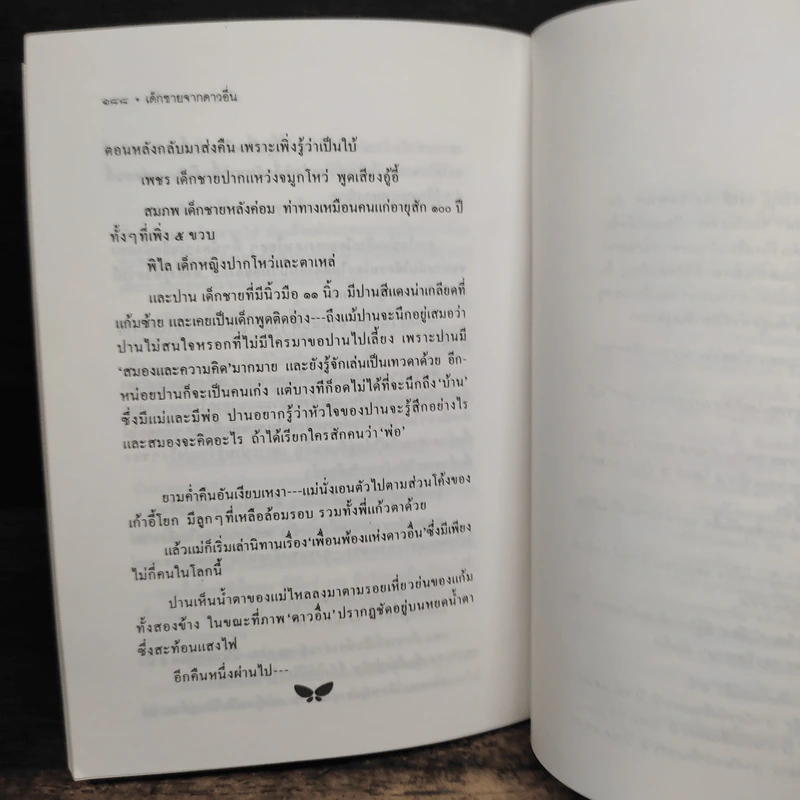 ๑๘๘ • เด็กชายจากดาวอื่น
ตอนหลังกลับมาส่งคืน เพราะเพิ่งรู้ว่าเป็นใบ้
เพชร เด็กชายปากแหว่งจมูกโหว่ พูดเสียงอู้อี้
สมภพ เด็กชายหลังค่อม ท่าทางเหมือนคนแก่อายุสัก ๑๐๐ ปี
ทั้งๆที่เพิ่ง ๕ ขวบ
พิไล เด็กหญิงปากโหว่และตาเหล่
และปาน เด็กชายที่มีนิ้วมือ ๑๑ นิ้ว มีปานสีแดงน่าเกลียดที่
แก้มซ้าย และเคยเป็นเด็กพูดติดอ่าง---ถึงแม้ปานจะนึกอยู่เสมอว่า
ปานไม่สนใจหรอกที่ไม่มีใครมาขอปานไปเลี้ยง เพราะปานมี
‘สมองและความคิด’มากมาย และยังรู้จักเล่นเป็นเทวดาด้วย อีก-
หน่อยปานก็จะเป็นคนเก่ง แต่บางทีก็อดไม่ได้ที่จะนึกถึง‘บ้าน’
ซึ่งมีแม่และมีพ่อ ปานอยากรู้ว่าหัวใจของปานจะรู้สึกอย่างไร
และสมองจะคิดอะไร ถ้าได้เรียกใครสักคนว่า‘พ่อ’
ยามค่ำคืนอันเงียบเหงา---แม่นั่งเอนตัวไปตามส่วนโค้งของ
เก้าอี้โยก มีลูกๆที่เหลือล้อมรอบ รวมทั้งพี่แก้วตาด้วย
แล้วแม่ก็เริ่มเล่านิทานเรื่อง‘เพื่อนพ้องแห่งดาวอื่น’ซึ่งมีเพียง
ไม่กี่คนในโลกนี้
ปานเห็นน้ำตาของแม่ไหลลงมาตามรอยเหี่ยวย่นของแก้ม
ทั้งสองข้าง ในขณะที่ภาพ‘ดาวอื่น’ปรากฏชัดอยู่บนหยดน้ำตา
ซึ่งสะท้อนแสงไฟ
อีกคืนหนึ่งผ่านไป---